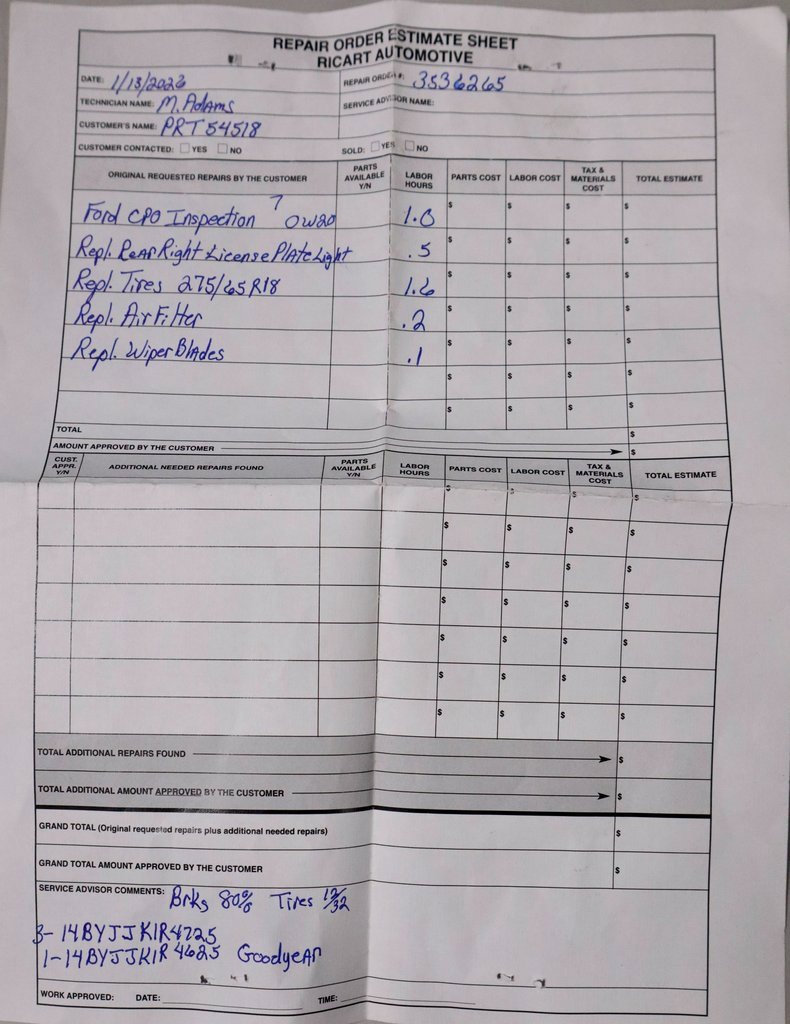 REPAIR ORDER ESTIMATE SHEET
RICART AUTOMOTIVE
DATE: 1/13/2026 REPAIR ORDER #: 3536265
TECHNICIAN NAME: M. Adams SERVICE ADVISOR NAME:
CUSTOMER'S NAME: PRT 54518
CUSTOMER CONTACTED: YES NO SOLD: YES NO
ORIGINAL REQUESTED REPAIRS BY THE CUSTOMER PARTS AVAILABLE Y/N LABOR HOURS PARTS COST LABOR COST TAX & MATERIALS COST TOTAL ESTIMATE
Ford CPO Inspection 7 0W20 1.0 $ $ $ $
Repl. Rear Right License Plate Light .5 $ $ $ $
Repl. Tires 275/65R18 1.6 $ $ $ $
Repl. Air Filter .2 $ $ $ $
Repl. Wiper Blades .1 $ $ $ $
$ $ $ $
$ $ $ $
TOTAL $
AMOUNT APPROVED BY THE CUSTOMER $
CUST. APPR. Y/N ADDITIONAL NEEDED REPAIRS FOUND PARTS AVAILABLE Y/N LABOR HOURS PARTS COST LABOR COST TAX & MATERIALS COST TOTAL ESTIMATE
$ $ $ $
$ $ $ $
$ $ $ $
$ $ $ $
$ $ $ $
$ $ $ $
$ $ $ $
TOTAL ADDITIONAL REPAIRS FOUND $
TOTAL ADDITIONAL AMOUNT APPROVED BY THE CUSTOMER $
GRAND TOTAL (Original requested repairs plus additional needed repairs) $
GRAND TOTAL AMOUNT APPROVED BY THE CUSTOMER $
SERVICE ADVISOR COMMENTS: Brks 80% Tires 12/32
3-14BYJJK1R4725
1-14BYJJK1R4625 Goodyear
WORK APPROVED: DATE: TIME: